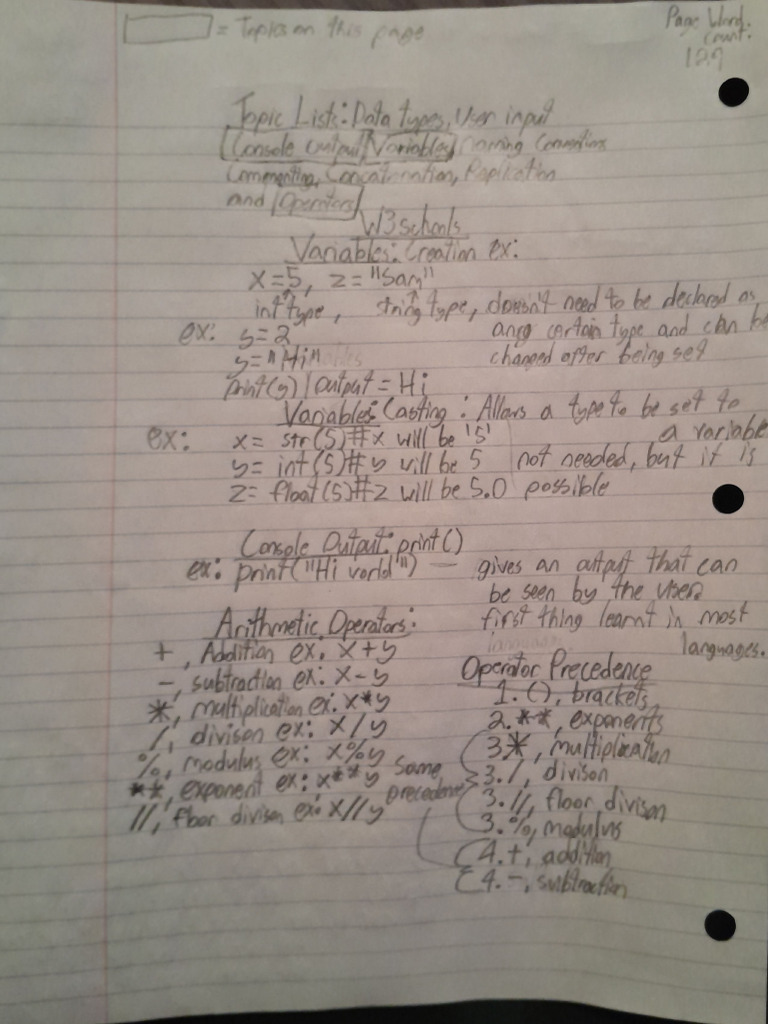 = Topics on this page
Page Word
Count:
Topic Lists: Data types, User input
Console Output, Variables, Naming Conventions
Commenting, Concatenation, Replication
and Operators
W3schools
Variables: Creation ex:
x=5, z="Sam"
int type, string type, doesn't need to be declared as
ex: y=2 any certain type and can be
y="Hi" changed after being set
print(y) | output = Hi
Variables: Casting: Allows a type to be set to
ex: x= str(5)#x will be '5' a variable
y= int(5)#y will be 5 not needed, but it is
z= float(5)#z will be 5.0 possible
Console Output: print()
ex: print("Hi world") — gives an output that can
be seen by the user
Arithmetic Operators: first thing learnt in most
+, Addition ex: x+y languages.
-, subtraction ex: x-y Operator Precedence
*, multiplication ex: x*y 1. (), brackets
/, divison ex: x/y 2. **, exponents
%, modulus ex: x%y 3. *, multiplication
**, exponent ex: x**y same 3. /, divison
//, floor divison ex: x//y precedence 3. //, floor divison
3. %, modulus
4. +, addition
4. -, subtraction